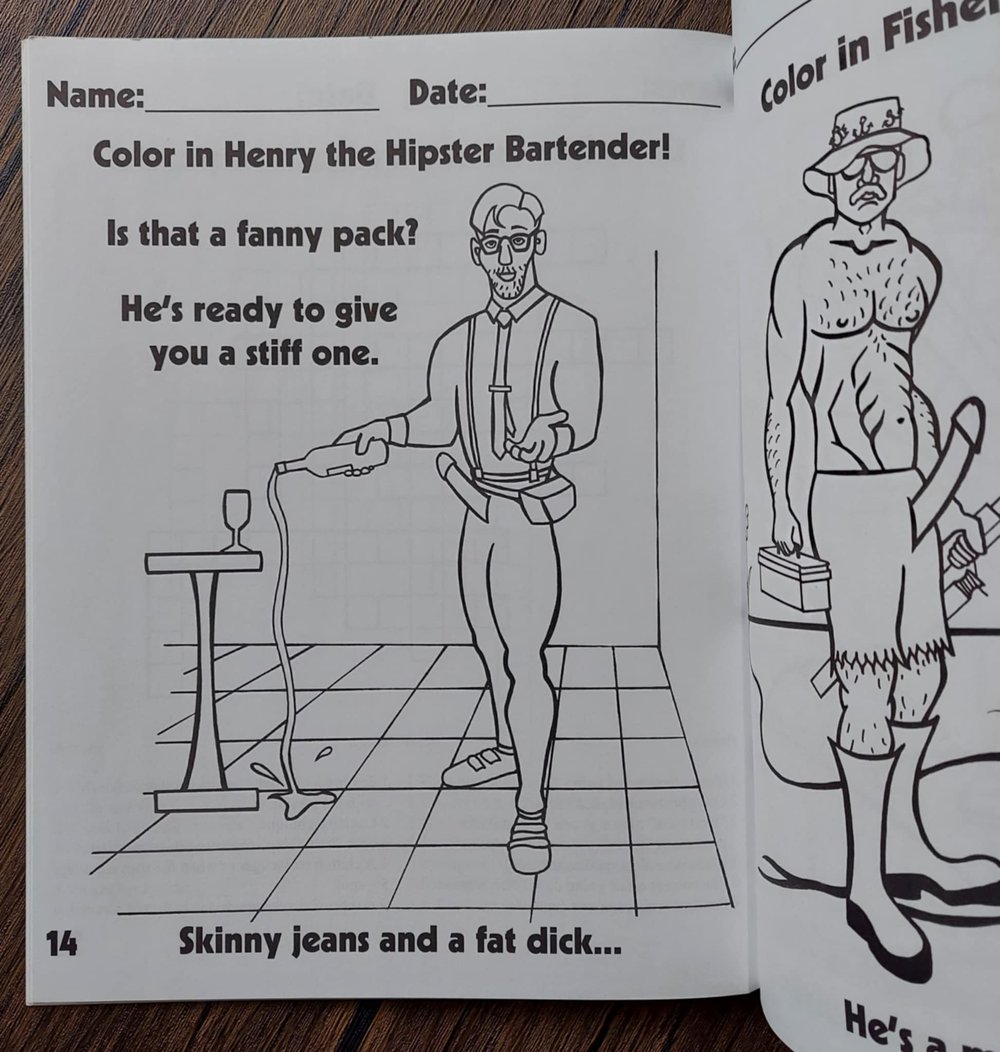 Name: Date:
Color in Henry the Hipster Bartender!
Is that a fanny pack?
He's ready to give
you a stiff one.
14
Skinny jeans and a fat dick...
Color in
He's a